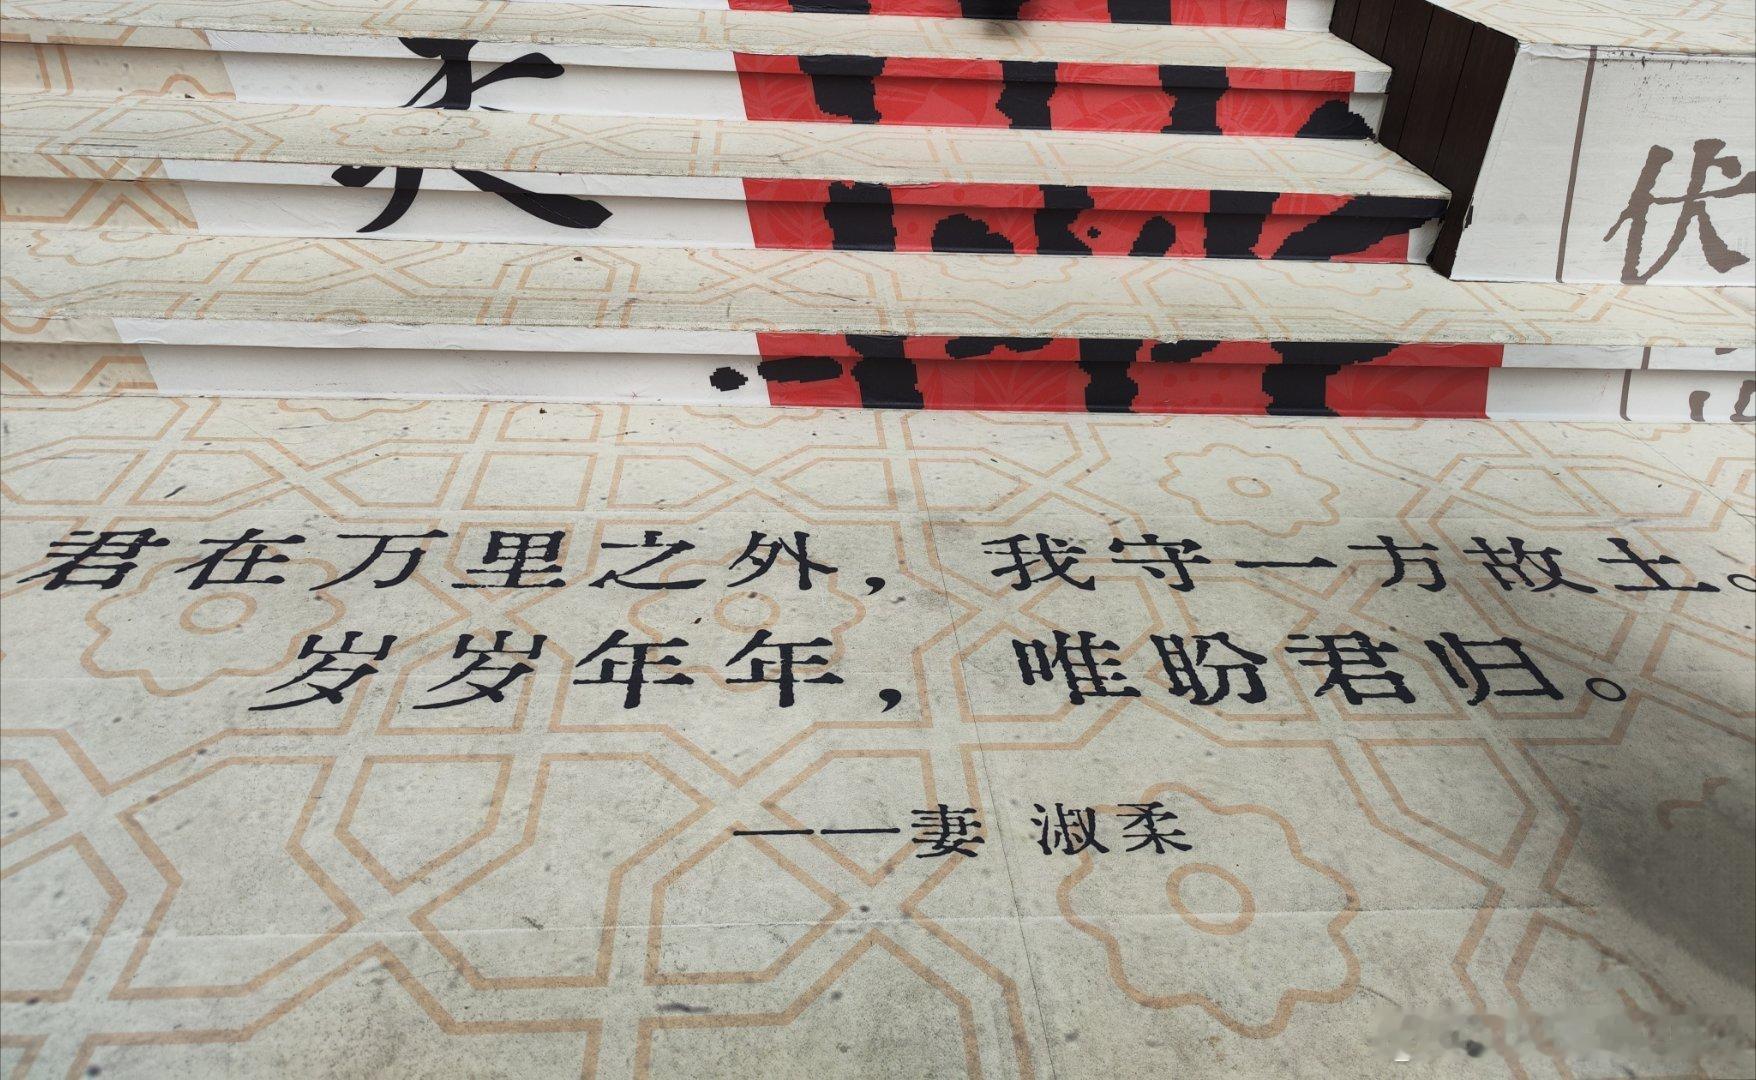 伏
君在万里之外，我守一方故土。
岁岁年年，唯盼君归。
——妻 淑柔